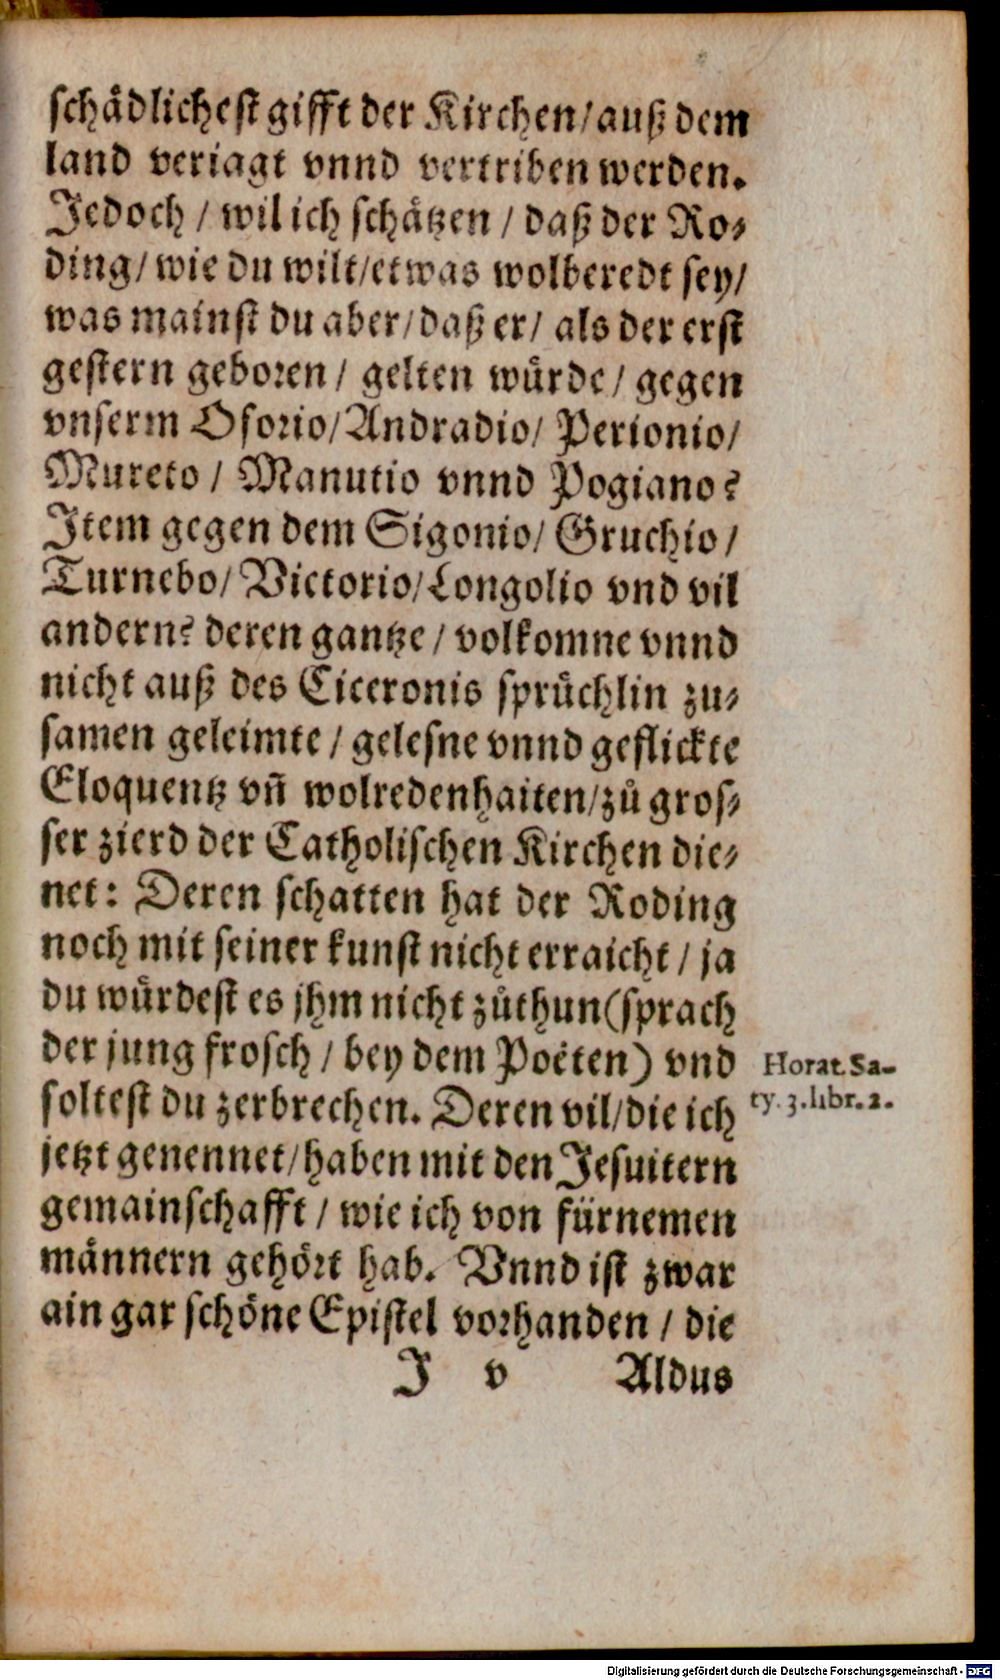 schådlichest gifft der Kirchen/ auß dem
land veriagt vnnd vertriben werden.
Jedoch / wil ich schåtzen / daß der Ro⸗
ding/ wie du wilt/ etwas wolberedt sey/
was mainst du aber/ daß er/ als der erst
gestern geboren / gelten wůrde / gegen
vnserm Osorio/ Andradio/ Perionio/
Mureto / Manutio vnnd Pogiano?
Jtem gegen dem Sigonio/ Gruchio /
Turnebo/ Victorio/ Longolio vnd vil
andern? deren gantze / volkomne vnnd
nicht auß des Ciceronis sprůchlin zu⸗
samen geleimte / gelesne vnnd geflickte
Eloquentz vñ wolredenhaiten/ zů gros⸗
ser zierd der Catholischen Kirchen die⸗
net: Deren schatten hat der Roding
noch mit seiner kunst nicht erraicht / ja
du wůrdest es jhm nicht zůthun (sprach
der jung frosch / bey dem Poëten) vnd
soltest du zerbrechen. Deren vil/ die ich
jetzt genennet/ haben mit den Jesuitern
gemainschafft / wie ich von fürnemen
männern gehört hab. Vnnd ist zwar
ain gar schöne Epistel vorhanden / die
J v Aldus
Horat. Sa-
ty. 3. libr. 2.
Digitalisierung gefördert durch die Deutsche Forschungsgemeinschaft - DFG